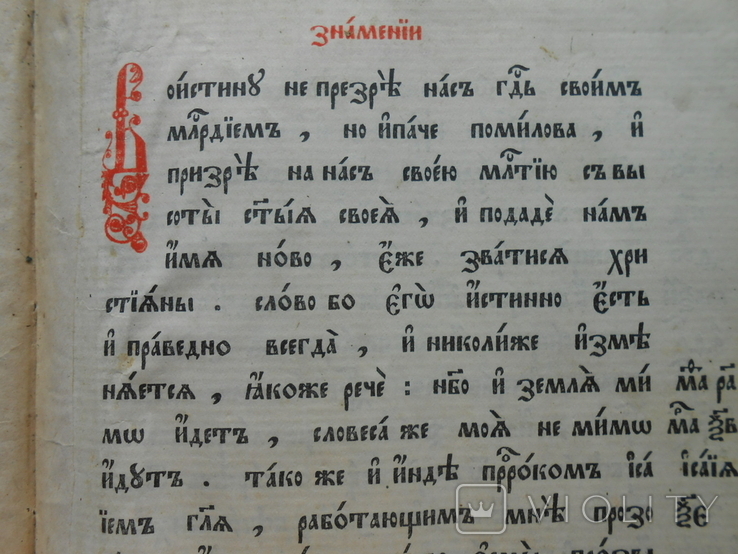 зна́менїи
Вои́стинꙋ не презрѣ̀ на́съ гдⷭ҇ь свои́мъ
млⷭ҇рдїемъ , но и҆па́че поми́лова , и҆
призрѣ̀ на на́съ свое́ю млⷭ҇тїю съ вы
соты̀ ст҃ы́ѧ своеѧ̀ , и҆ подадѐ на́мъ
и҆́мѧ но́во , є҆́же зва́тисѧ хри
стїѧ́ны . сло́во бо є҆гѡ̀ и҆́стинно є҆́сть
и҆ пра́ведно всегда̀ , и҆ николи́же и҆змѣ
нѧ́етсѧ , ꙗ҆́коже речѐ : нб҃о и҆ землѧ̀ ми
мѡ и҆́детъ , словеса́ же моѧ̀ не ми́мѡ
и҆́дꙋтъ . та́ко же и҆ и҆́ндѣ прⷪ҇ро́комъ і҆са
їемъ гл҃ѧ , рабо́тающимъ мнѣ̀ прозо
і҆са́їѧ
VIOLITY